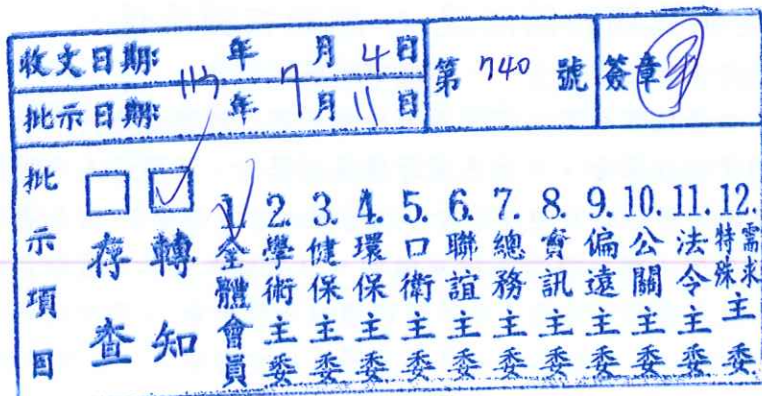 收文日期: 113年7月4日
批示日期: 年7月11日
第740號
簽章
批示項目
□存查
☑轉知
1.全體會員
2.學術主委
3.健保主委
4.環保主委
5.口衛主委
6.聯誼主委
7.總務主委
8.資訊主委
9.偏遠主委
10.公關主委
11.法令主委
12.特殊需求主委